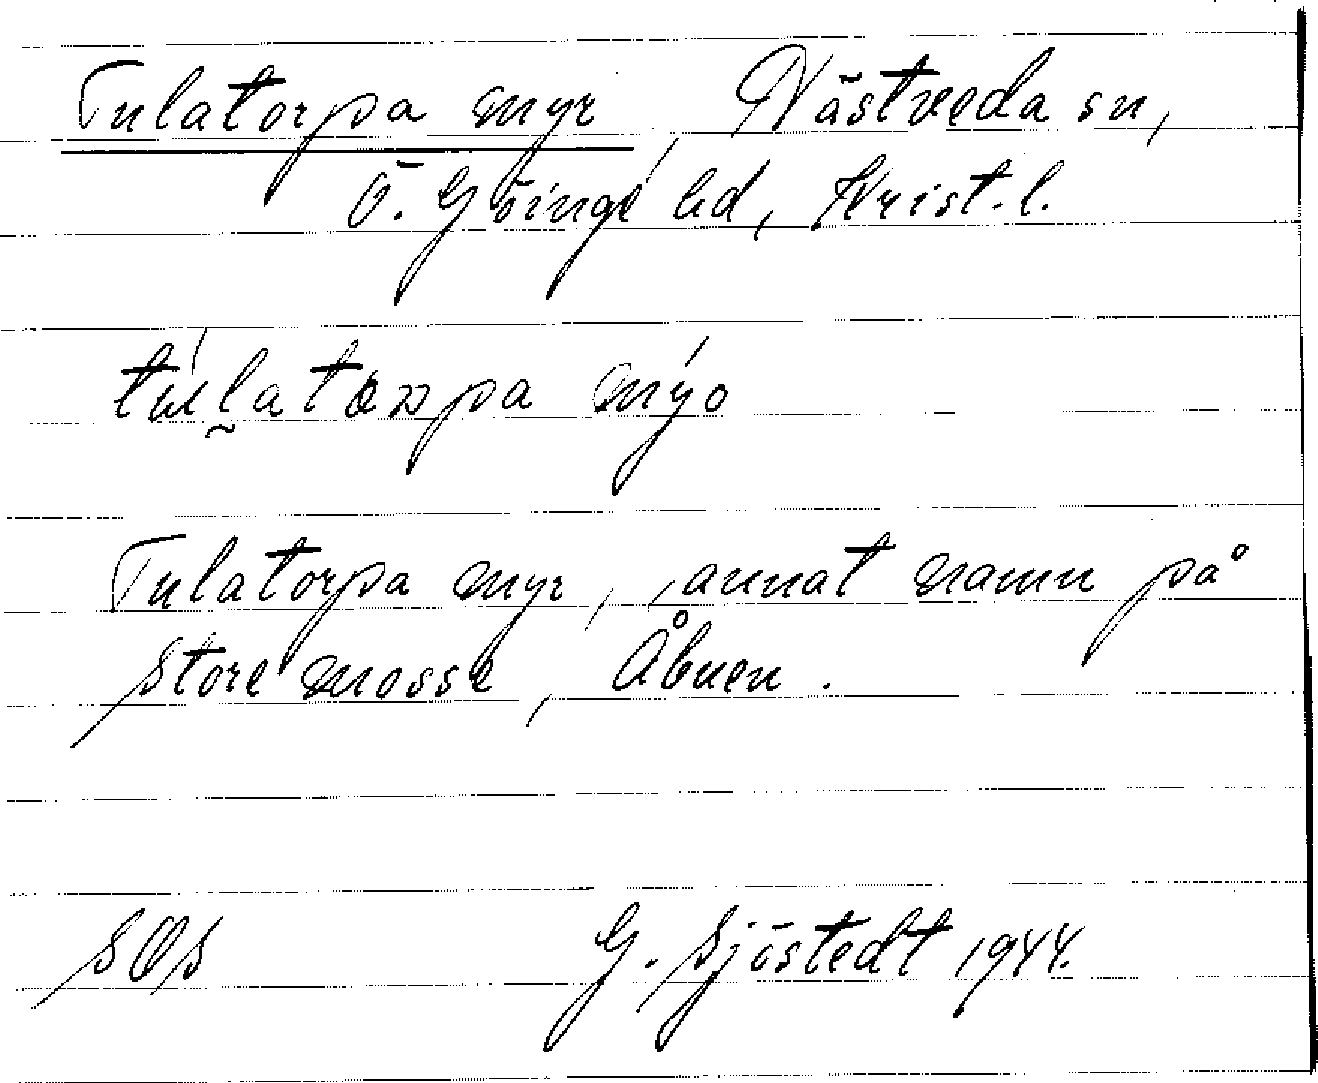 Tulatorpa myr, Västveda sn,
Ö. Göinge hd, Krist. l.
Tulatorpa myr, annat namn på
store mosse, Åbuen.
SOS G. Sjöstedt 1944.